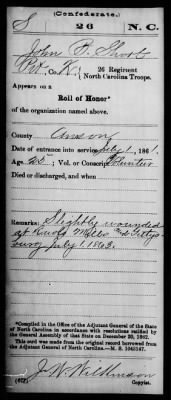 (Confederate.)
S 26 N.C.
John P.
Pvt., Co. K, 26 Regiment
North Carolina Troops.
Appears on a
Roll of Honor*
of the organization named above.
County Anson
Date of entrance into service July 1, 1861.
Age ; Vol. or Conscript Volunteer
Died or discharged, and when
Remarks: Slightly wounded
at Rawls Mills & Gettys-
burg July 1 1863.
*Compiled in the Office of the Adjutant General of the State
of North Carolina in accordance with resolutions ratified by
the General Assembly of that State on December 20, 1862.
This card was made from the original record borrowed from
the Adjutant General of North Carolina—M. S.
J. W. Wilkinson
Copyist.